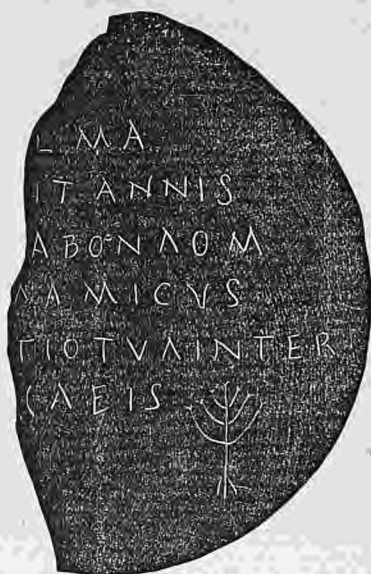 L MA
IT ANNIS
ABONAOM
NAMICVS
TIOTVAINTER
CAEIS